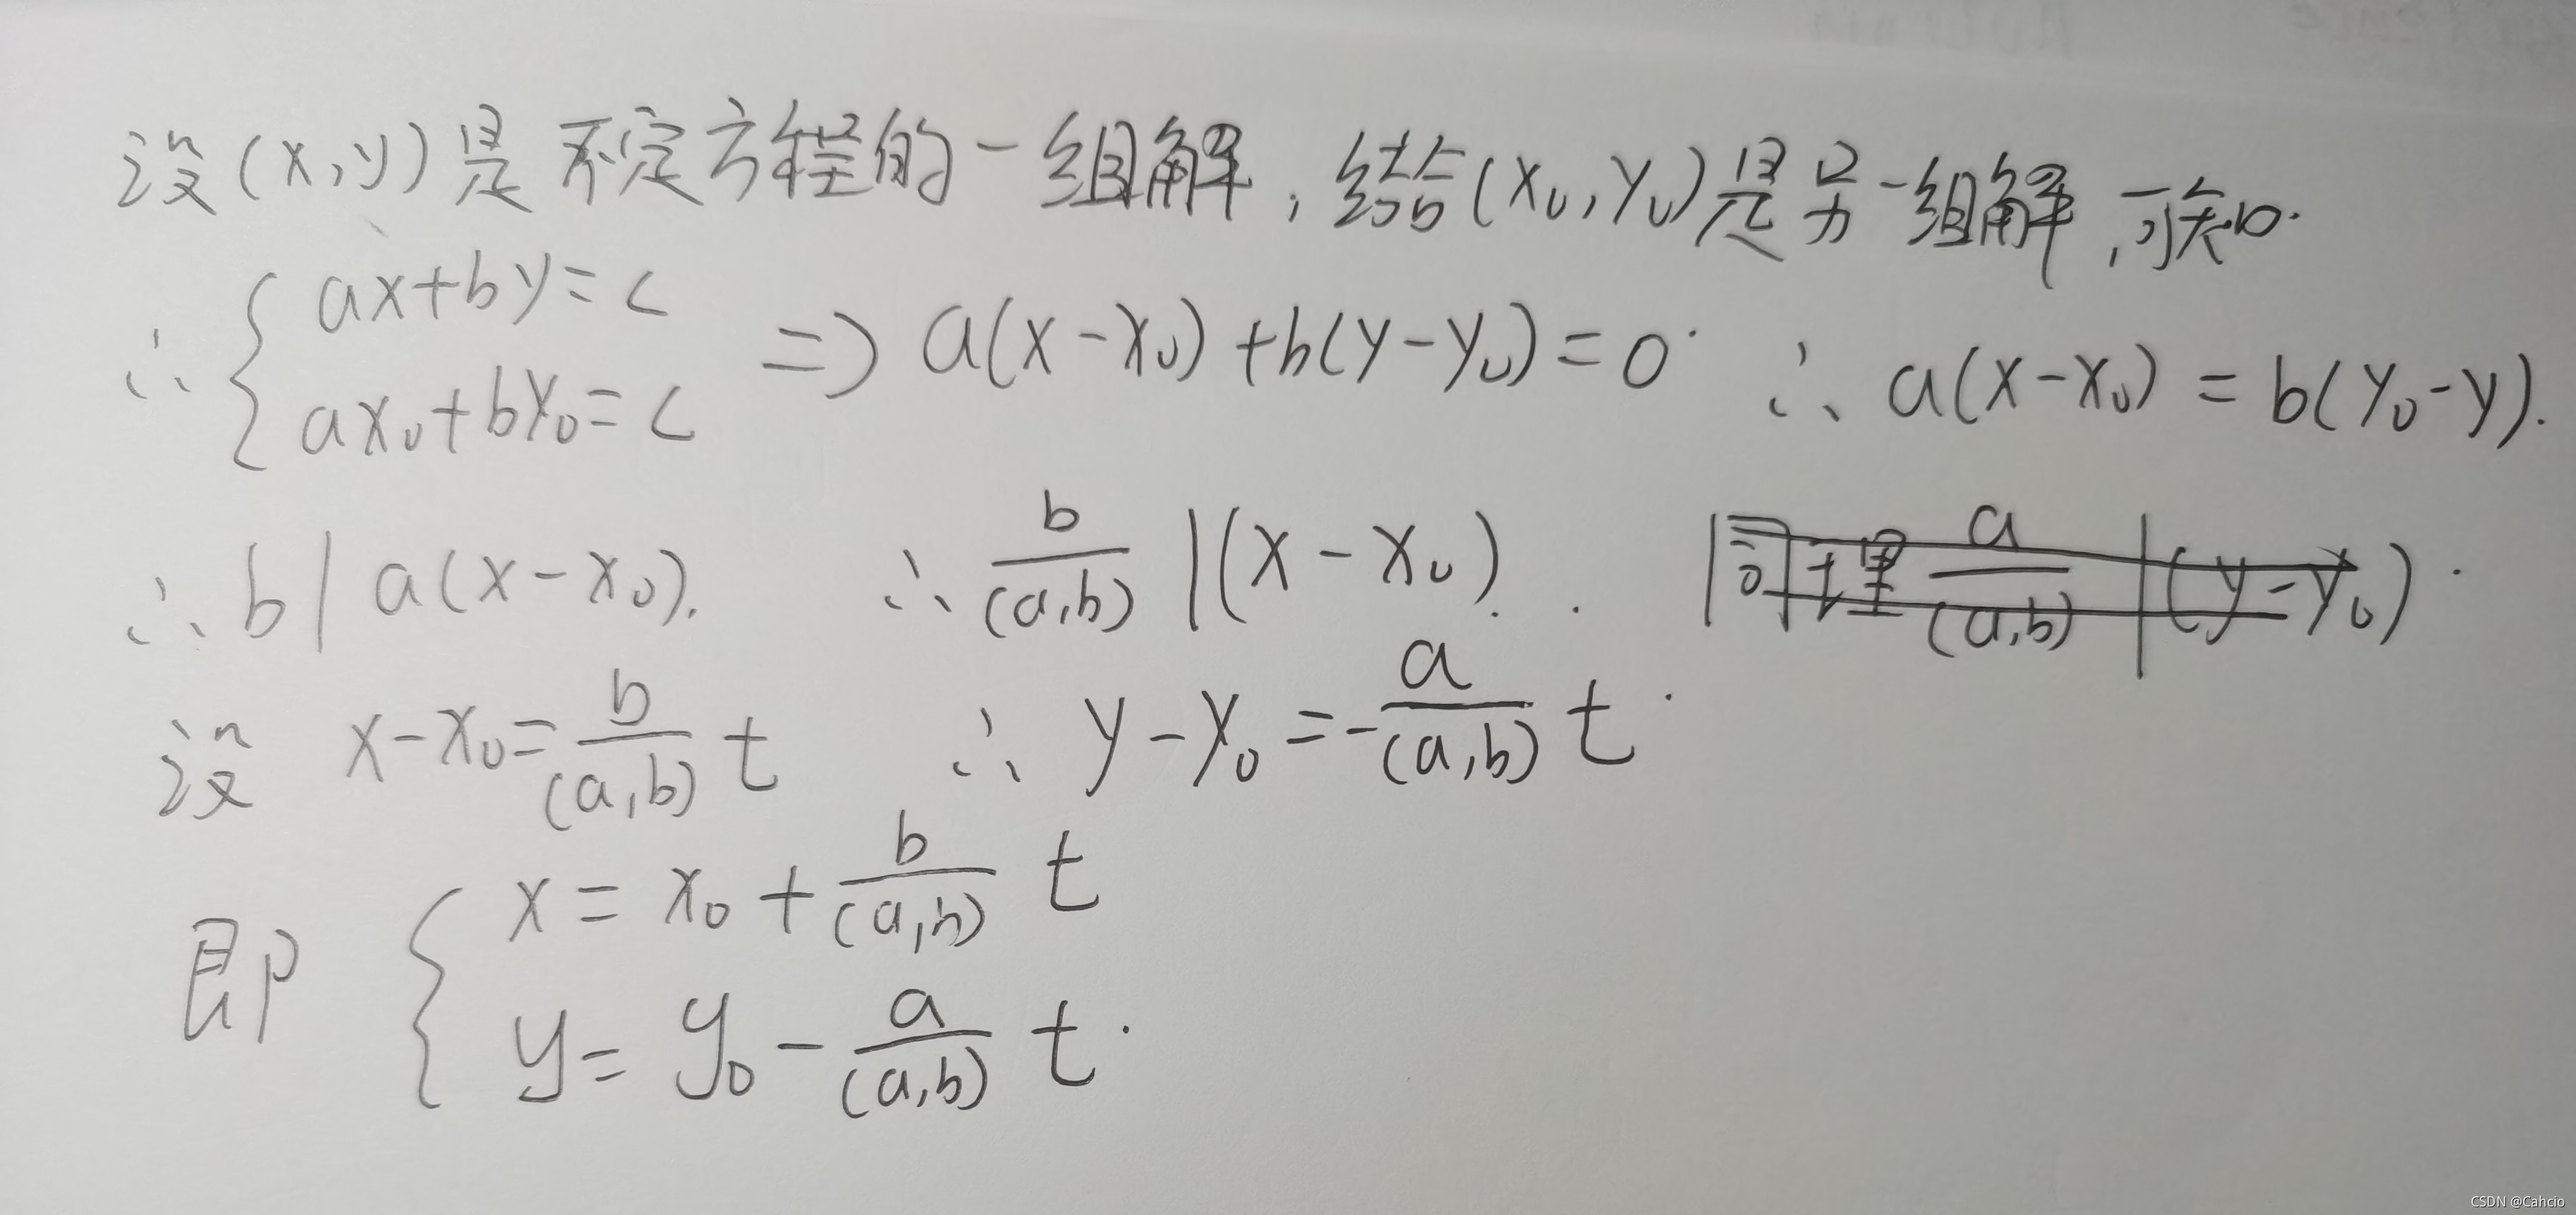 设(x,y)是不定方程的一组解,结合(x₀,y₀)是另一组解,可知.
∴ { ax+by=c
ax₀+by₀=c ⇒ a(x-x₀)+b(y-y₀)=0. ∴ a(x-x₀) = b(y₀-y).
∴ b | a(x-x₀). ∴ b/(a,b) | (x-x₀). . 同理 a/(a,b) | (y-y₀).
设 x-x₀= b/(a,b) t ∴ y-y₀=- a/(a,b) t.
即 { x = x₀ + b/(a,b) t
y = y₀ - a/(a,b) t.
CSDN @Cahcio